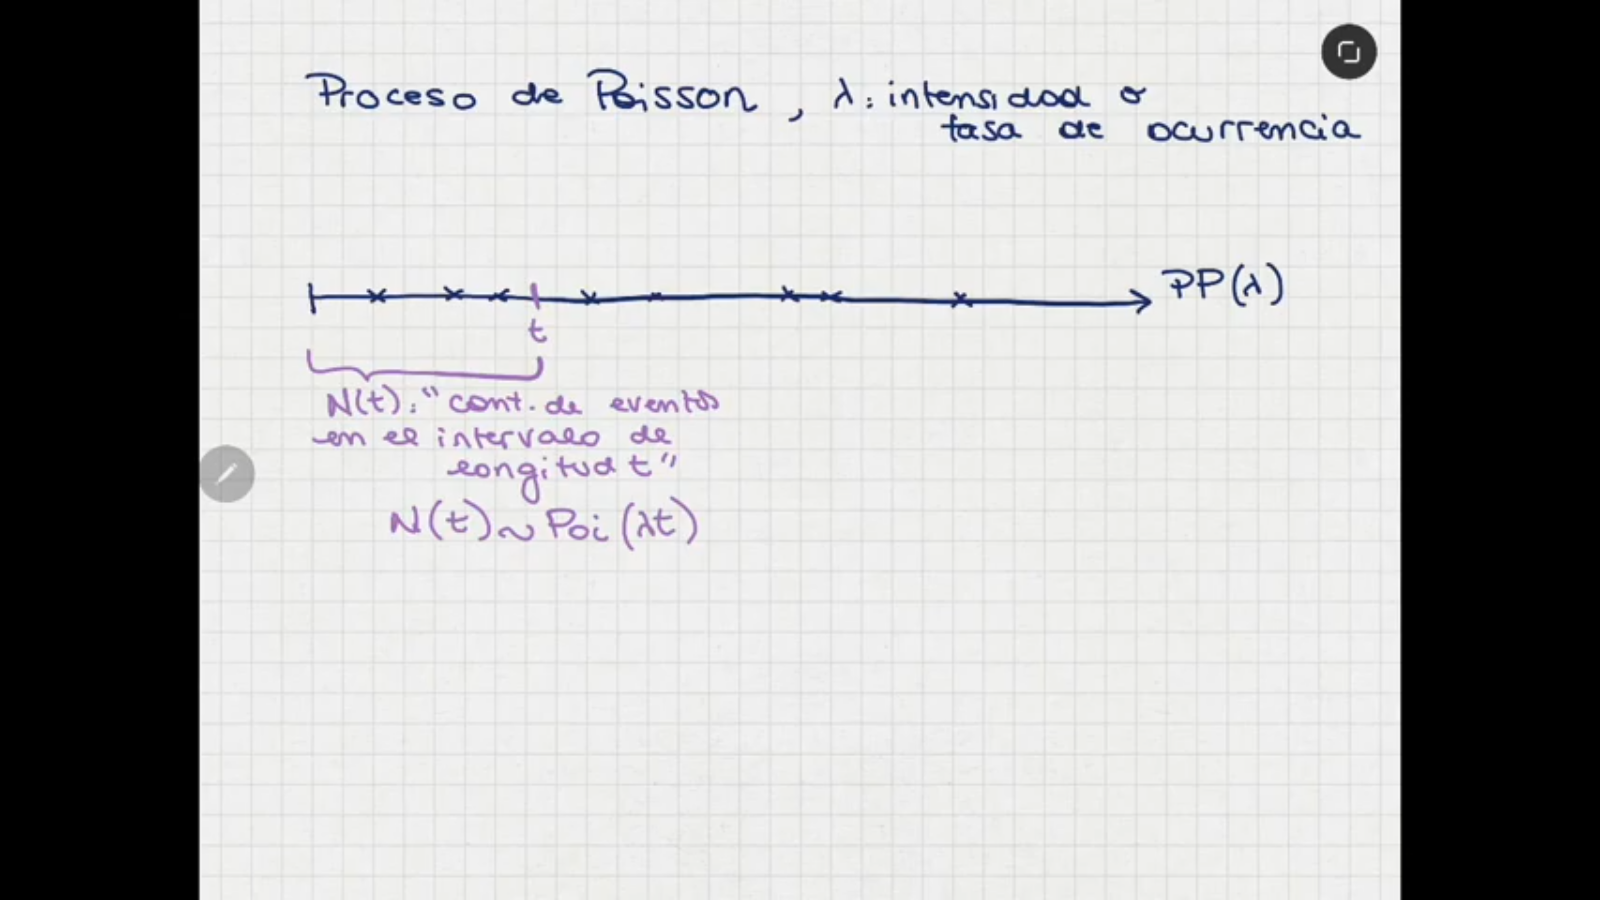 Proceso de Poisson, λ: intensidad o
tasa de ocurrencia
PP(λ)
t
N(t): "cant. de eventos
en el intervalo de
longitud t"
N(t) ~ Poi (λt)